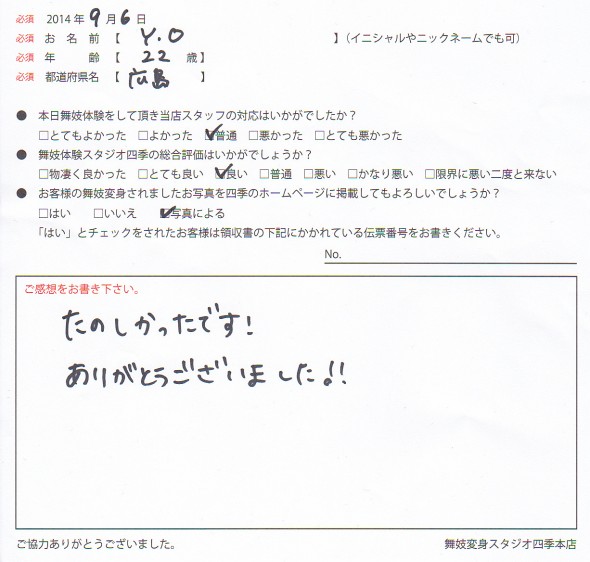 必須 2014年 9月 6日
必須 お名前【 Y.O 】(イニシャルやニックネームでも可)
必須 年齢【 22 歳】
必須 都道府県名【 広島 】
● 本日舞妓体験をして頂き当店スタッフの対応はいかがでしたか？
□とてもよかった □よかった ☑普通 □悪かった □とても悪かった
● 舞妓体験スタジオ四季の総合評価はいかがでしょうか？
□物凄く良かった □とても良い ☑良い □普通 □悪い □かなり悪い □限界に悪い二度と来ない
● お客様の舞妓変身されましたお写真を四季のホームページに掲載してもよろしいでしょうか？
□はい □いいえ ☑写真による
「はい」とチェックをされたお客様は領収書の下記にかかれている伝票番号をお書きください。
No.
ご感想をお書き下さい。
たのしかったです!
ありがとうございました!!
ご協力ありがとうございました。 舞妓変身スタジオ四季本店